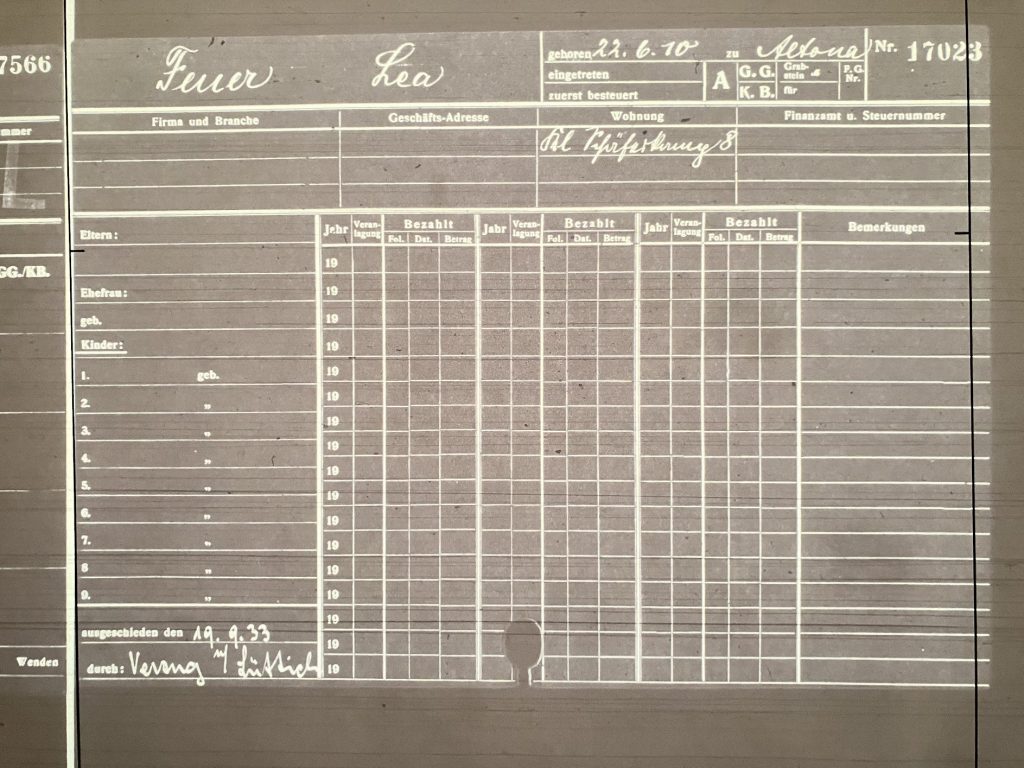 7566
Feuer Lea
geboren 22. 6. 10 zu Altona
Nr. 17023
eingetreten
zuerst besteuert
A
G. G.
K. B.
Grabstein
für
P. G. Nr.
mmer
Firma und Branche Geschäfts-Adresse Wohnung Finanzamt u. Steuernummer
Kl Schäferkamp 8
GG./KB.
Eltern: Jahr Veranlagung Bezahlt Jahr Veranlagung Bezahlt Jahr Veranlagung Bezahlt Bemerkungen
Fol. Dat. Betrag Fol. Dat. Betrag Fol. Dat. Betrag
19
Ehefrau: 19
geb. 19
Kinder: 19
1. geb. 19
2. " 19
3. " 19
4. " 19
5. " 19
6. " 19
7. " 19
8 " 19
9. " 19
19
ausgeschieden den 19. 9. 33 19
Wenden
durch: Verzug n/ Lüttich 19